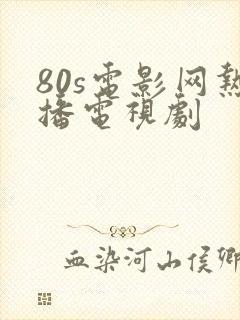 80s電影网熱
播電視劇
血染河山侯卿